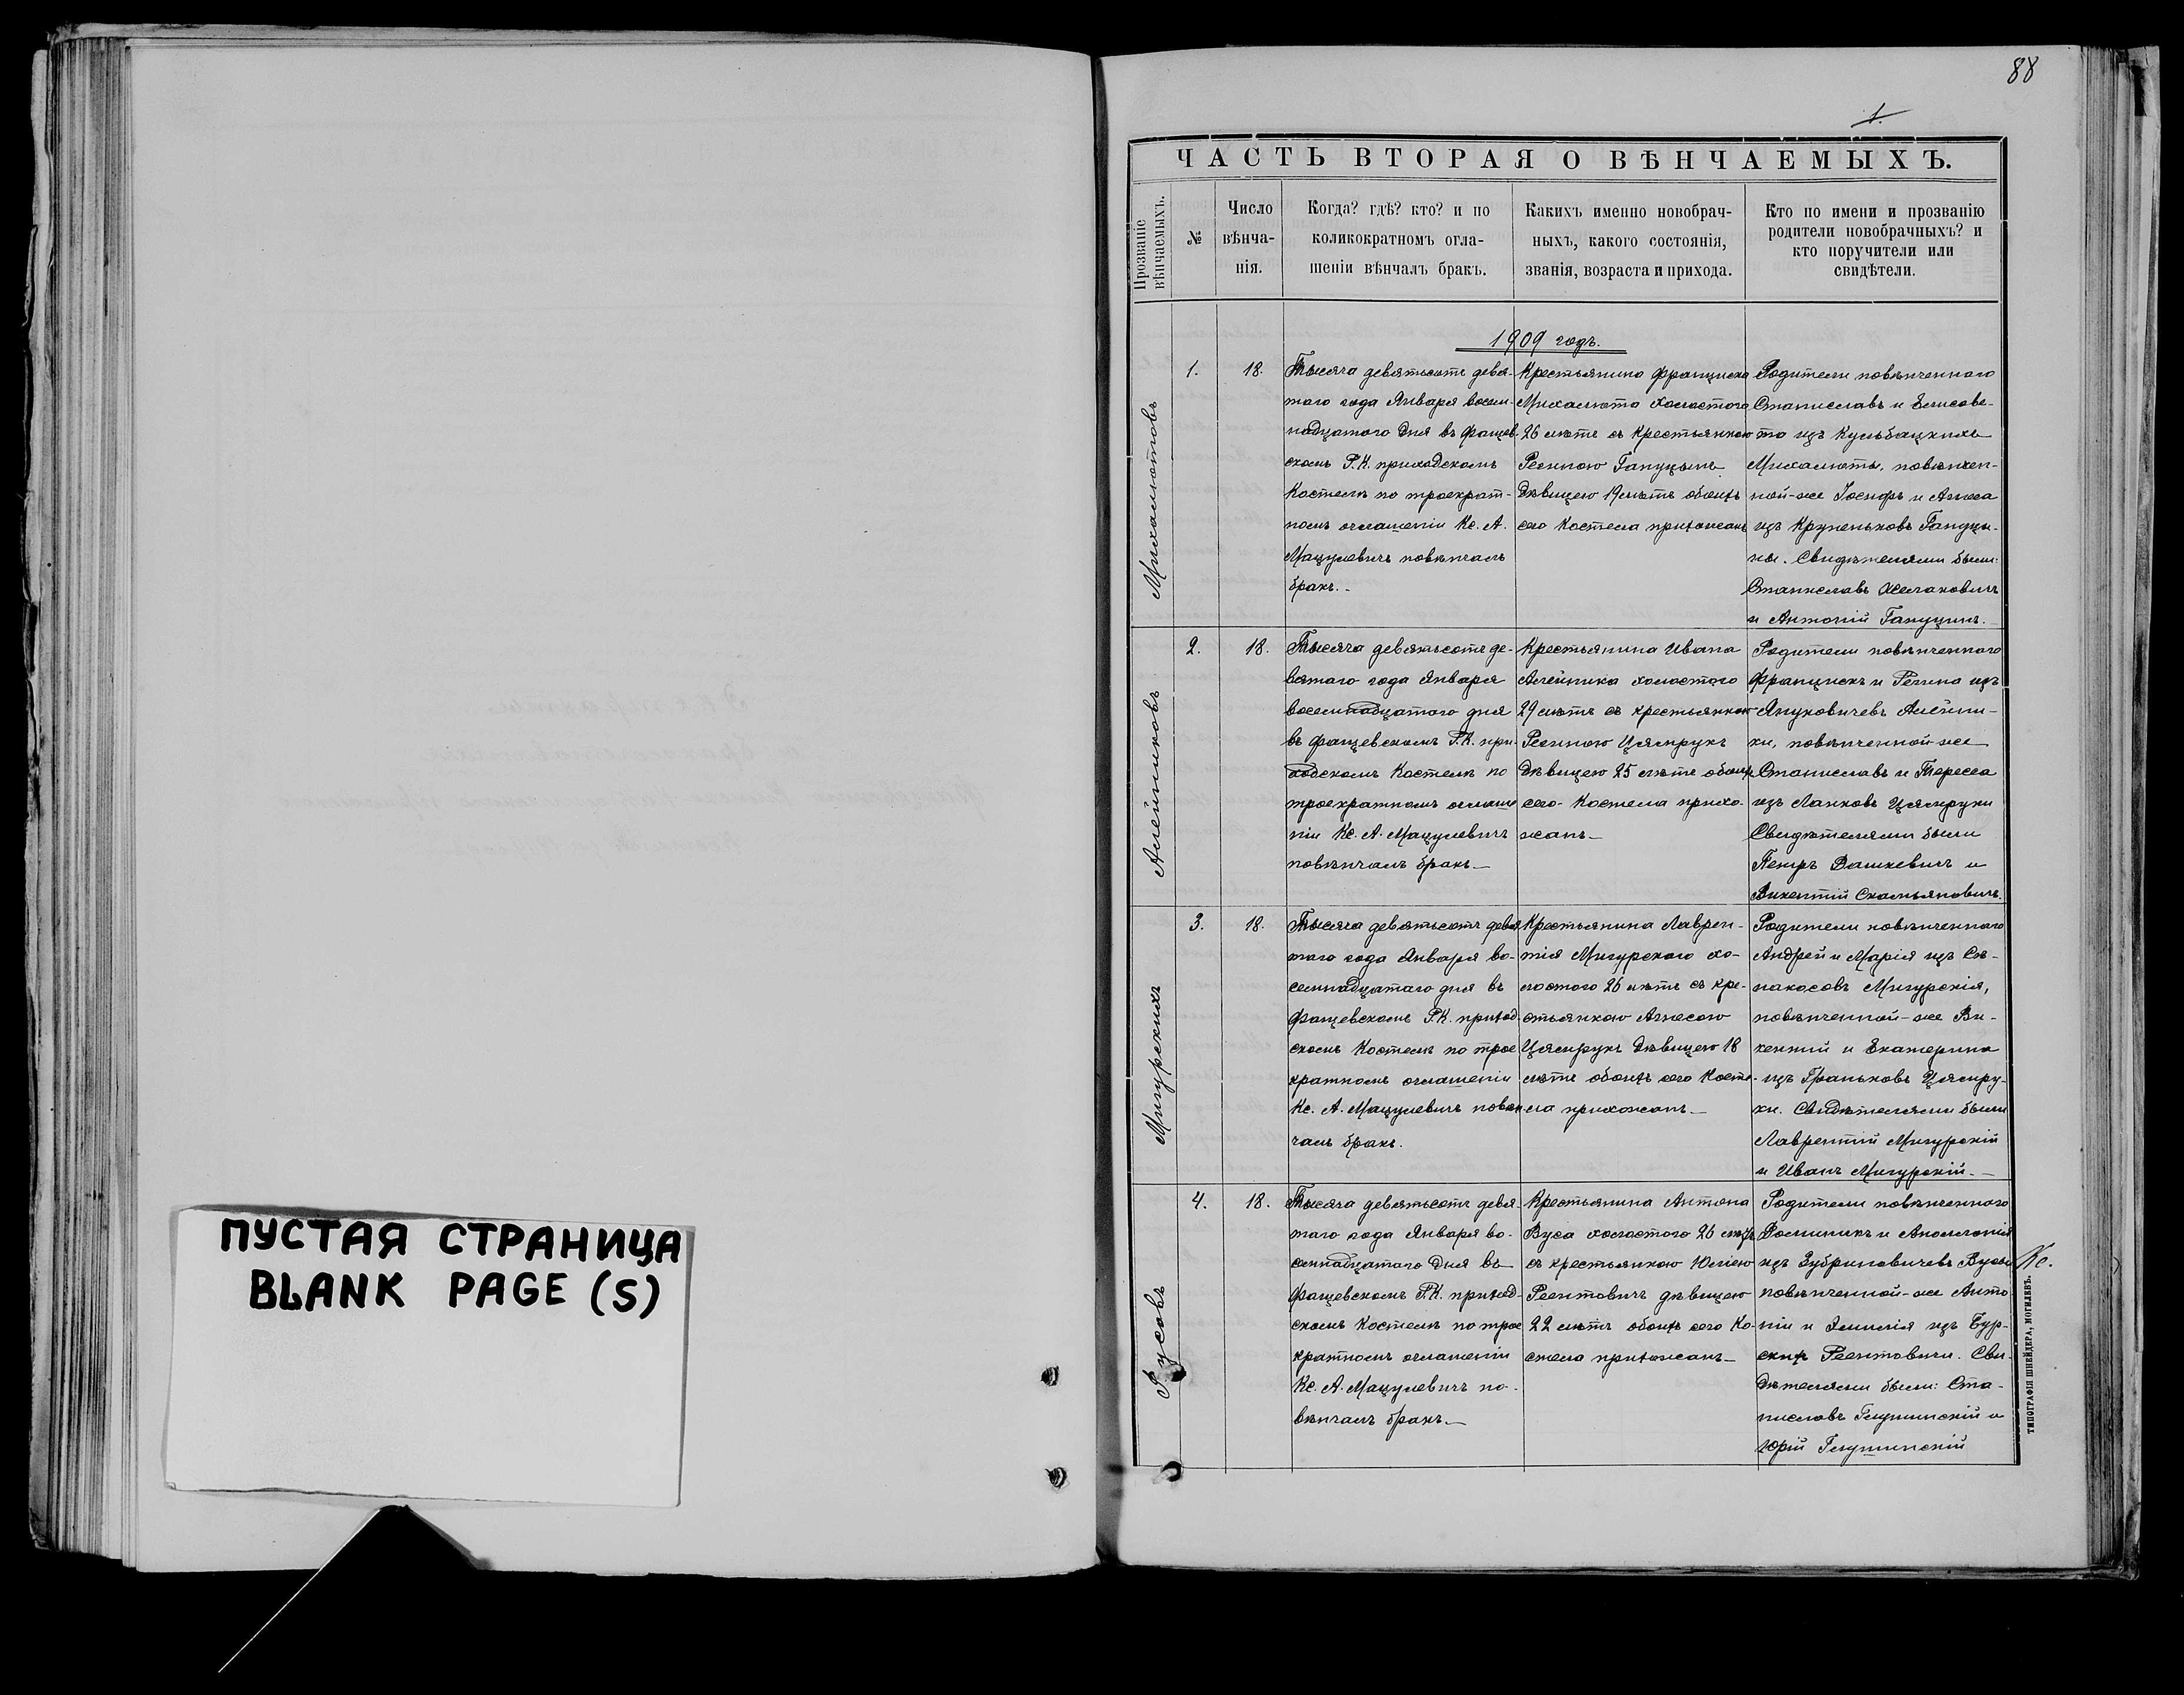 ПУСТАЯ СТРАНИЦА
BLANK PAGE (S)
88
1.
ЧАСТЬ ВТОРАЯ О ВѢНЧАЕМЫХЪ.
Прозваніе вѣнчаемыхъ.
№
Число вѣнча-
нія.
Когда? гдѣ? кто? и по
коликократномъ огла-
шеніи вѣнчалъ бракъ.
Какихъ именно новобрач-
ныхъ, какого состоянія,
званія, возраста и прихода.
Кто по имени и прозванію
родители новобрачныхъ? и
кто поручители или
свидѣтели.
1909 годъ.
Михалютовъ
1.
18.
Тысяча девятьсотъ девя-
таго года Января восем-
надцатого дня въ Фащев-
скомъ Р.К. приходскомъ
Костелѣ по троекрат-
номъ оглашеніи Кс. А.
Мацулевичъ повѣнчалъ
бракъ.
Крестьянина Франциска
Михалюта холостого
26 лѣтъ съ крестьянкою
Гапуцынъ
Дѣвицею 19 лѣтъ обоихъ
сего Костела прихожанъ
Родители повѣнченного
Станиславъ и Елисаве-
та изъ Кульбацкихъ
Михалюты, повѣнчен-
ной-же Іосифъ и Анна
изъ Крупеньковъ Гапуцы-
ны. Свидѣтелями были:
Станиславъ
и Антоній Гапуцынъ.
Алейниковъ
2.
18.
Тысяча девятьсотъ де-
вятаго года Января
восемнадцатого дня
въ Фащевскомъ Р.К. при-
ходскомъ Костелѣ по
троекратномъ оглаше
ніи Кс. А. Мацулевичъ
повѣнчалъ бракъ
Крестьянина Ивана
Алейника холостого
29 лѣтъ съ крестьянкою
Цямрукъ
Дѣвицею 25 лѣтъ обоихъ
сего Костела прихо-
жанъ
Родители повѣнченного
Францискъ и Регина изъ
Януковичевъ Алейни-
ки, повѣнченной-же
Станиславъ и Тересса
изъ Лапковъ Цямруки
Свидѣтелями были
Петръ Вашкевичъ и
Викентій Скамьяновичъ.
Мигурскихъ
3.
18.
Тысяча девятьсотъ девя
таго года Января во-
семнадцатаго дня въ
Фащевскомъ Р.К. приход-
скомъ Костелѣ по трое
кратномъ оглашеніи
Кс. А. Мацулевичъ повѣн
чалъ бракъ.
Крестьянина Лаврен-
тія Мигурского хо-
лостого 26 лѣтъ съ кре-
стьянкою Агнесою
Цямрукъ Дѣвицею 18
лѣтъ обоихъ сего Косте-
ла прихожанъ
Родители повѣнченного
Андрей и Марія изъ Сѣ-
накосовъ Мигурскія,
повѣнченной-же Ви-
кентій и Екатерина
изъ Граньковъ Цямру-
ки. Свидѣтелями были
Лаврентій Мигурскій
и Иванъ Мигурскій.
4.
18.
Тысяча девятьсотъ девя-
таго года Января во-
семнадцатаго Дня въ
Фащевскомъ Р.К. приход-
скомъ Костелѣ по трое
кратномъ оглашеніи
Кс. А. Мацулевичъ по-
вѣнчалъ бракъ
Крестьянина Антона
Вуса холостого 26 лѣтъ
съ крестьянкою Юліею
Реентовичъ дѣвицею
22 лѣтъ обоихъ сего Ко-
стела прихожанъ
Родители повѣнченного
Доминикъ и Аполлонія
изъ Зубриновичевъ Вусы
повѣнченной-же Анто
ній и Эмилія изъ Бур-
скихъ Реентовичи. Сви-
дѣтелями были: Ста-
ниславъ Глушинскій и
Юрій Глушинскій
Кс.
ТИПОГРАФІЯ ШНЕЙДЕРА, МОГИЛЕВЪ.